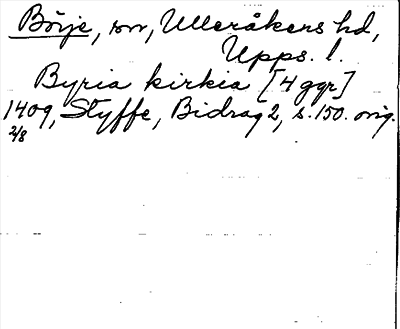 Börje, sn, Ulleråkers hd,
Upps. l.
Byria kirkia [4 ggr]
1409, Styffe, Bidrag 2, s. 150. orig.
2/8